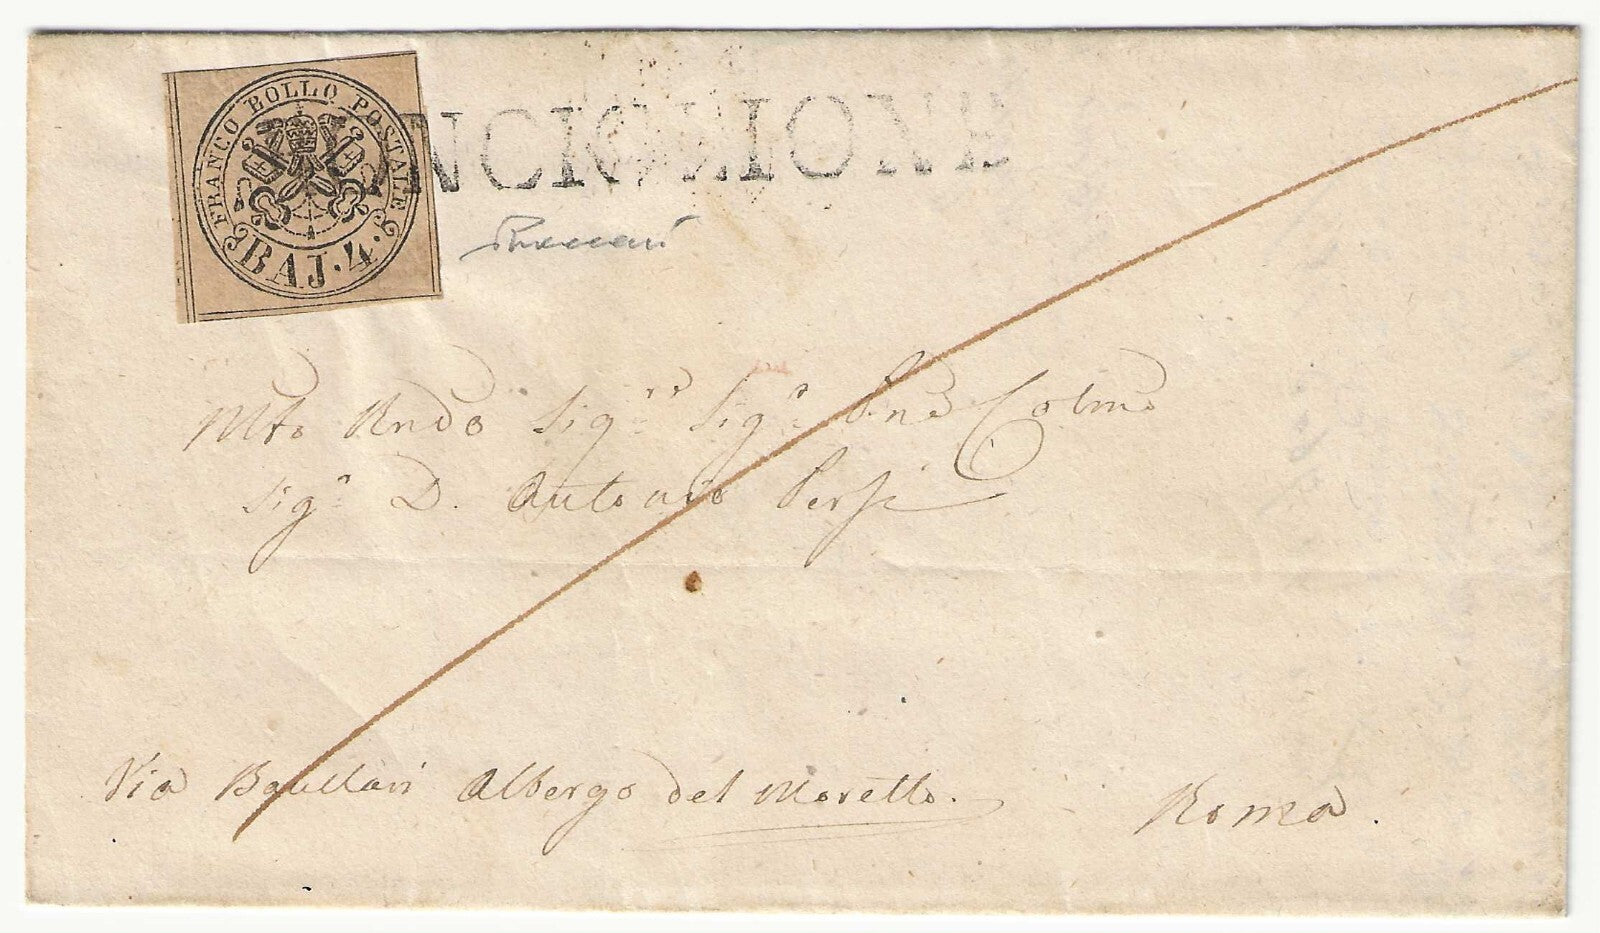 FRANCO BOLLO POSTALE
BAJ. 4.
NCIGLIONE
Mto Rndo Sigre Sigr Pne Colmo
Sigr D. Antonio Persi
Via Baullari Albergo del Moretto.
Roma.